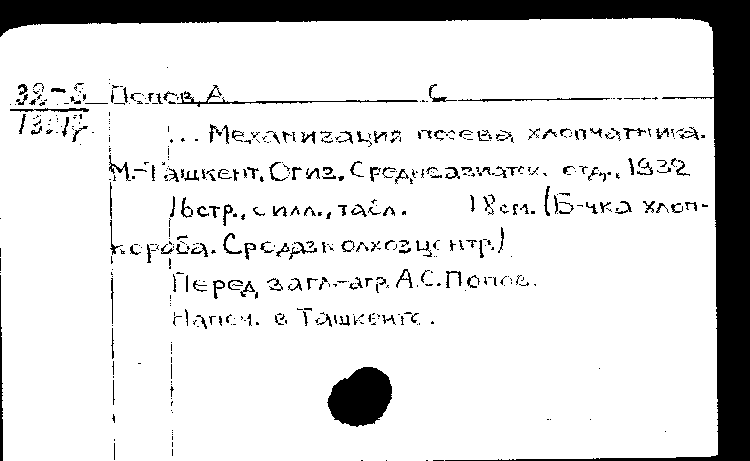 32-5 Попов, А. С
... Механизация посева хлопчатника.
М.-Ташкент, Огиз. Среднеазиатск. отд., 1932
16 стр., с илл., табл. 18 см. (Б-чка хлоп-
короба. Средазколхозцентр)
Перед загл.-агр. А.С. Попов.
Напеч. в Ташкенте.